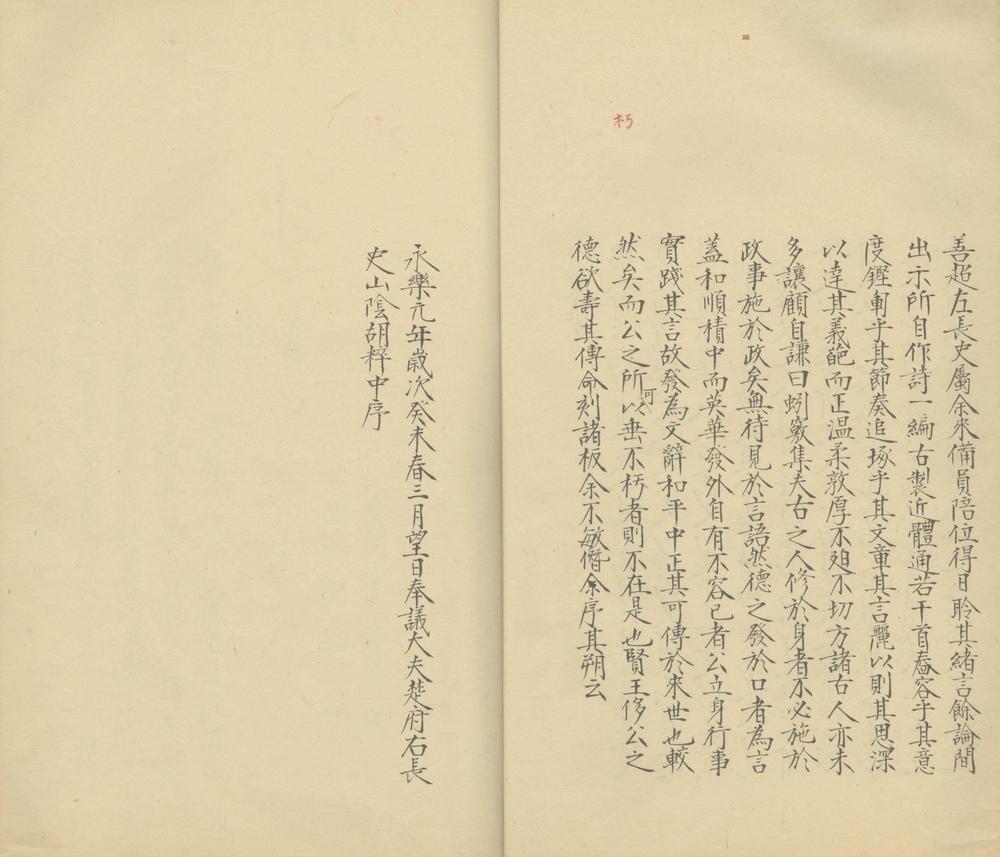 朽
善超左長史屬余来備員陪位得日聆其緒言餘論間
出示所自作詩一編古製近體通若干首舂容乎其意
度鏗䡖乎其節奏追琢乎其文章其言麗以則其思深
以達其義葩而正温柔敦厚不廹不切方諸古人亦未
多讓顧自謙曰蚓竅集夫古之人修於身者不必施於
政事施於政矣無待見於言語然德之發於口者為言
蓋和順積中而英華發外自有不容已者公立身行事
實踐其言故發為文辭和平中正其可傳於來世也較
然矣而公之所可以垂不朽者則不在是也賢王侈公之
德欲壽其傳命刻諸板余不敏僭余序其朔云
永樂元年歲次癸未春三月望日奉議大夫楚府右長
史山陰胡粹中序